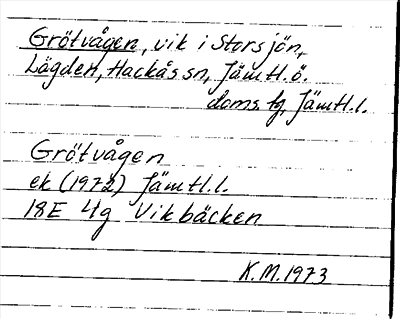 Grötvågen, vik i Storsjön,
Lägden, Hackås sn, Jämtl. ö.
doms. tg, Jämtl. l.
Grötvågen
ek (1972) Jämtl. l.
18E 4g Vikbäcken
K.M. 1973